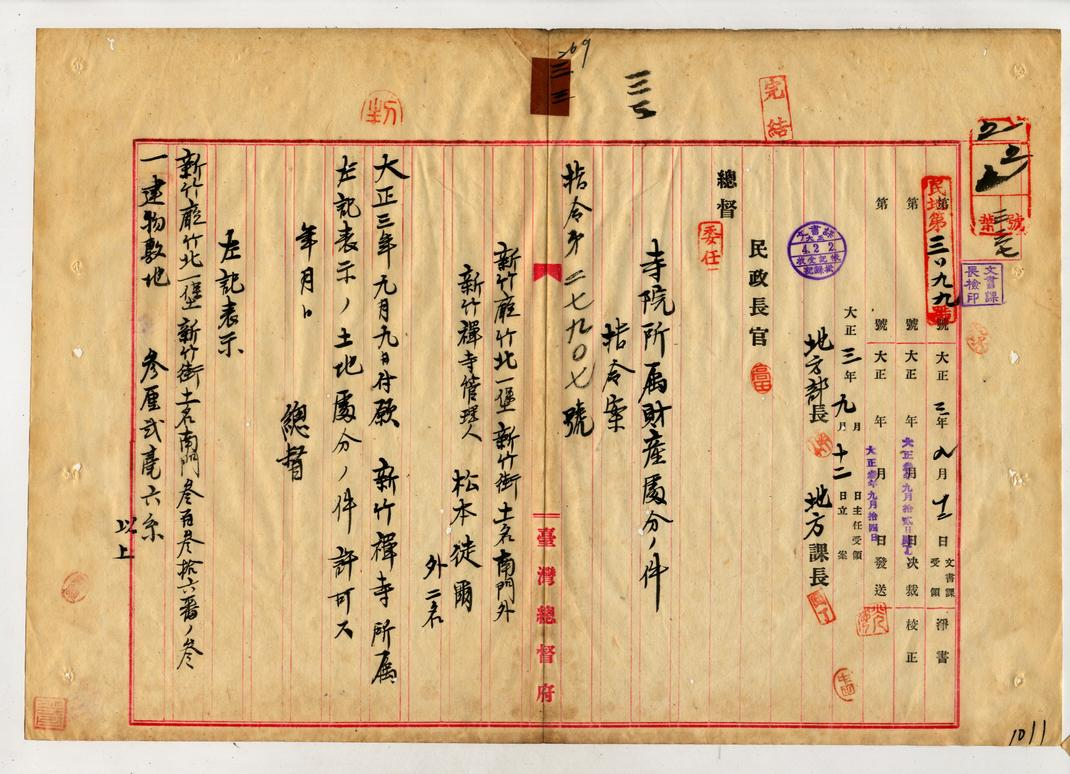 完結
民地第三〇九九號
第 號 大正三年九月十二日 文書課受領 淨書
第 號 大正 年 月 日決裁 校正
大正參年九月拾貳日
第 號 大正 年 月 日發送
大正參年九月拾四日
文書課長檢印
大正三年九月十二日立案
月 日主任受領
地方部長 地方課長
民政長官
總督 委任
寺院所属財産處分ノ件
指令案
指令第二七九〇七號
新竹廳竹北一堡新竹街土名南門外
新竹禪寺管理人
松本徒爾
外二名
大正三年九月九日付願 新竹禪寺所属
左記表示ノ土地處分ノ件許可ス
年月日
總督
左記表示
新竹廳竹北一堡新竹街土名南門參百參拾六番ノ參
一建物敷地 參厘弐毫六糸
以上
臺灣總督府
1011